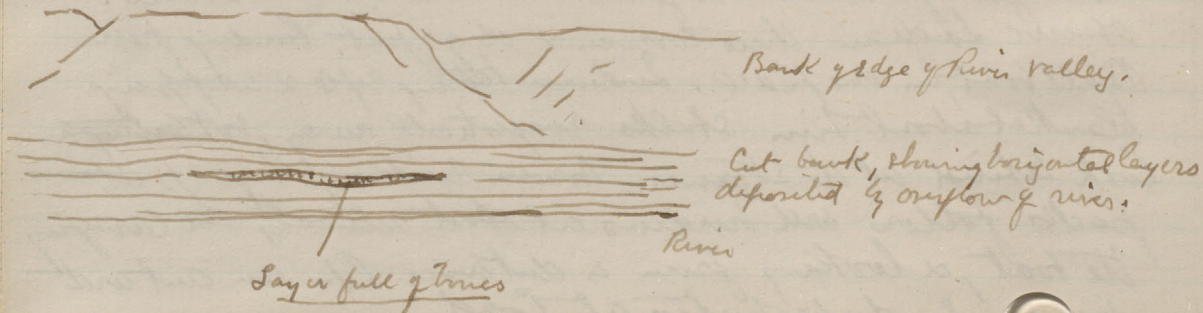 Bank of edge of River valley.
Cut bank, showing horizontal layers
deposited by overflow of river.
River
Layer full of bones